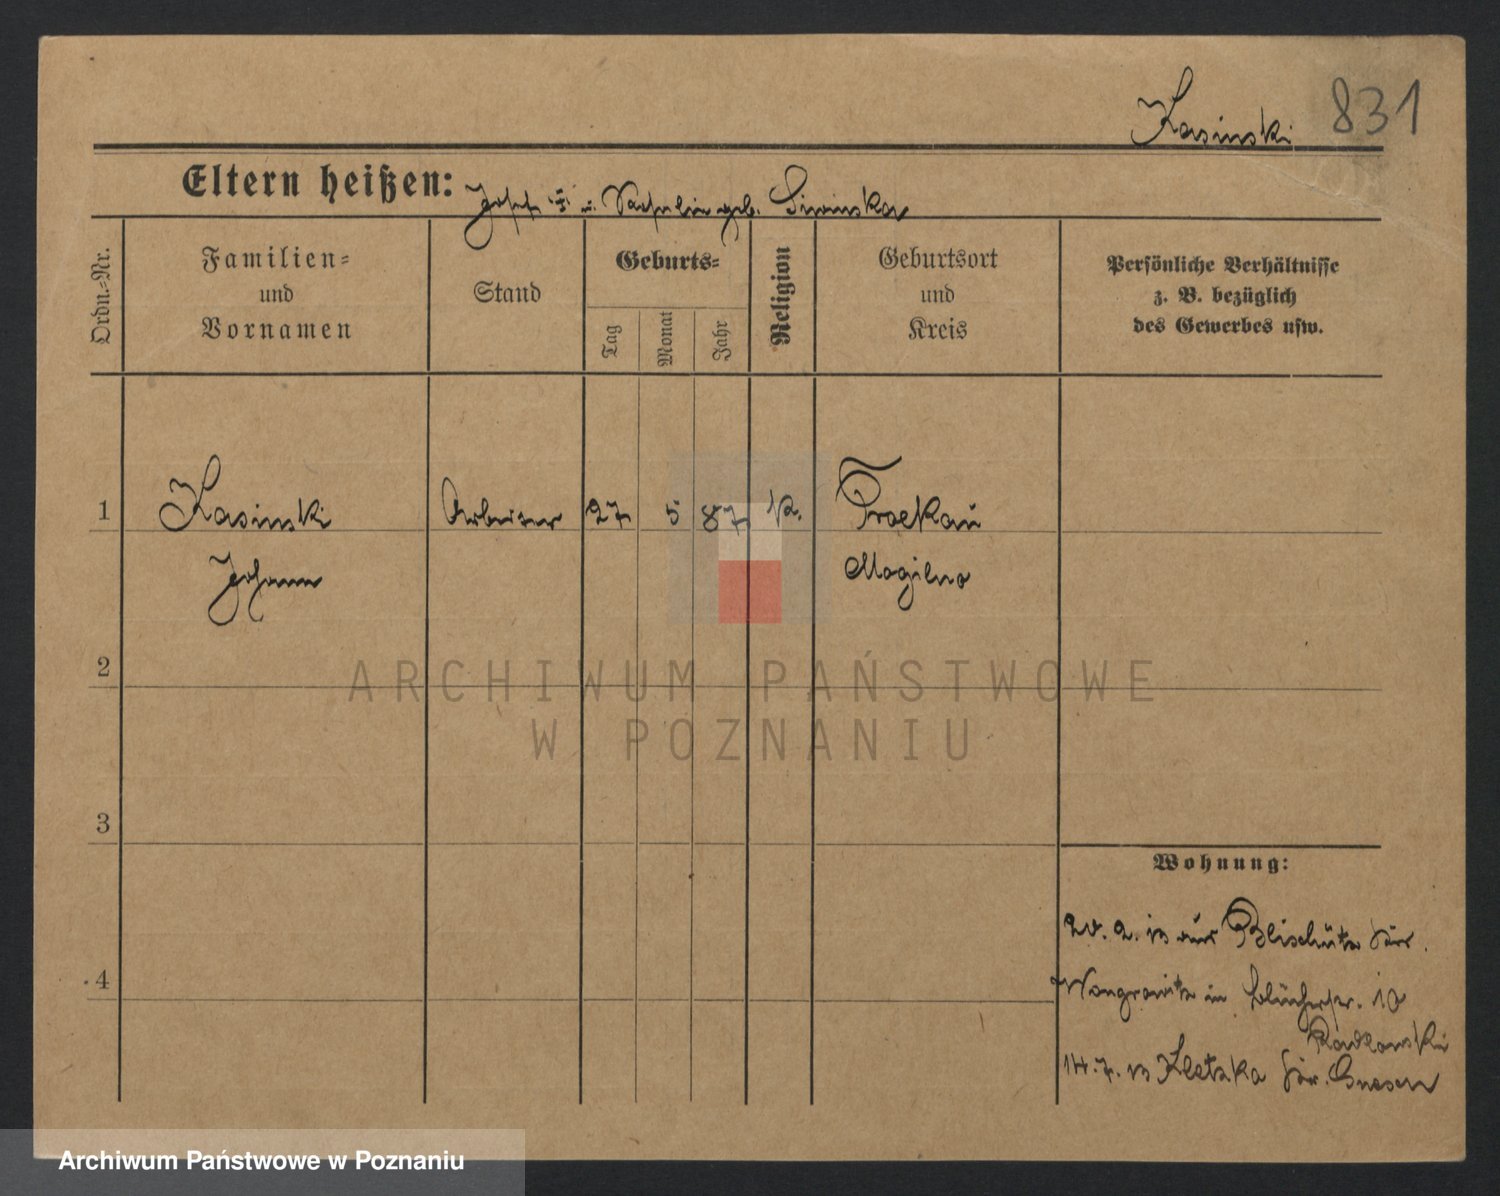 Kasinski 831
Eltern heißen: Josef u. geb. Siwinska
Ordn.-Nr.
Familien-
und
Vornamen
Stand
Geburts-
Tag
Monat
Jahr
Religion
Geburtsort
und
Kreis
Persönliche Verhältnisse
z. B. bezüglich
des Gewerbes usw.
1 Kasinski Arbeiter 27 5 87 k.
Johann Mogilno
2
3
4
ARCHIWUM PAŃSTWOWE
W POZNANIU
Wohnung:
aus Blischütz Kr.
Wongrowitz in Blücherstr. 10
Radlowski
14.7. Kletzko Kr. Gnesen
Archiwum Państwowe w Poznaniu